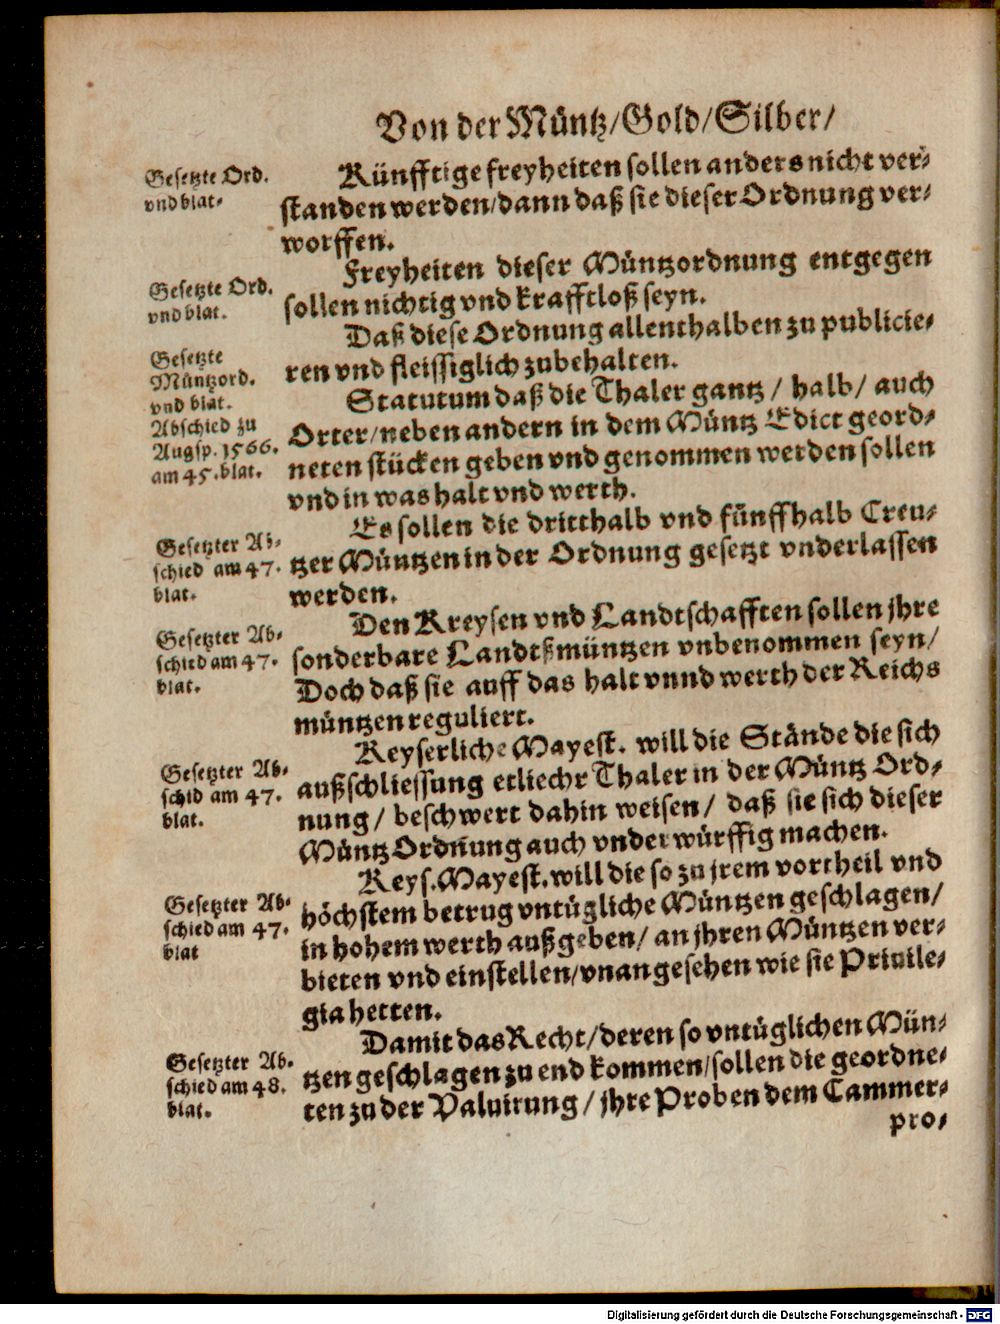 Von der Müntz/Gold/Silber/
Gesetzte Ord.
vnd blat.
Künfftige freyheiten sollen anders nicht ver-
standen werden/dann daß sie dieser Ordnung ver-
worffen.
Gesetzte Ord.
vnd blat.
Freyheiten dieser Müntzordnung entgegen
sollen nichtig vnd krafftloß seyn.
Gesetzte
Müntzord.
vnd blat.
Daß diese Ordnung allenthalben zu publicie-
ren vnd fleissiglich zubehalten.
Abschied zu
Augsp. 1566.
am 45. blat.
Statutum daß die Thaler gantz / halb/ auch
Orter/neben andern in dem Müntz Edict geord-
neten stücken geben vnd genommen werden sollen
vnd in was halt vnd werth.
Gesetzter Ab-
schied am 47.
blat.
Es sollen die dritthalb vnd fünffhalb Creu-
tzer Müntzen in der Ordnung gesetzt vnderlassen
werden.
Gesetzter Ab-
schied am 47.
blat.
Den Kreysen vnd Landtschafften sollen jhre
sonderbare Landtßmüntzen vnbenommen seyn/
Doch daß sie auff das halt vnnd werth der Reichs
müntzen reguliert.
Gesetzter Ab-
schid am 47.
blat.
Keyserliche Mayest. will die Stände die sich
außschliessung etliechr Thaler in der Müntz Ord-
nung/ beschwert dahin weisen/ daß sie sich dieser
Müntz Ordnung auch vnderwürffig machen.
Gesetzter Ab-
schied am 47.
blat
Keys. Mayest. will die so zu jrem vortheil vnd
höchstem betrug vntügliche Müntzen geschlagen/
in hohem werth außgeben/ an jhren Müntzen ver-
bieten vnd einstellen/vnangesehen wie sie Priuile-
gia hetten.
Gesetzter Ab-
schied am 48.
blat.
Damit das Recht/deren so vntüglichen Mün-
tzen geschlagen zu end kommen/sollen die geordne-
ten zu der Valuirung / jhre Proben dem Cammer-
pro-
Digitalisierung gefördert durch die Deutsche Forschungsgemeinschaft - DFG